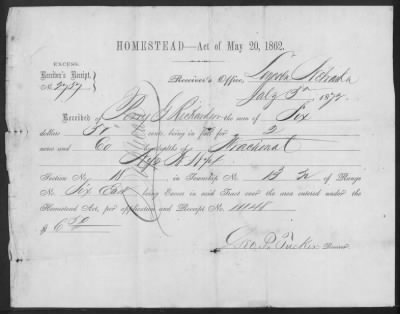 HOMESTEAD—Act of May 20, 1862.
EXCESS.
Receiver's Receipt,
No 2787
Receiver's Office, Lincoln Nebraska
July 5th 1872.
Received of Perry Richardson the sum of Six
dollars 50 cents, being in full for 2
acres and 60 hundredths of
Section No. 18 in Township No. 13 N of Range
No. Six East being Excess in said Tract over the area entered under the
Homestead Act, per application and Receipt No.
$ 6 50
Geo. P. Tucker Receiver